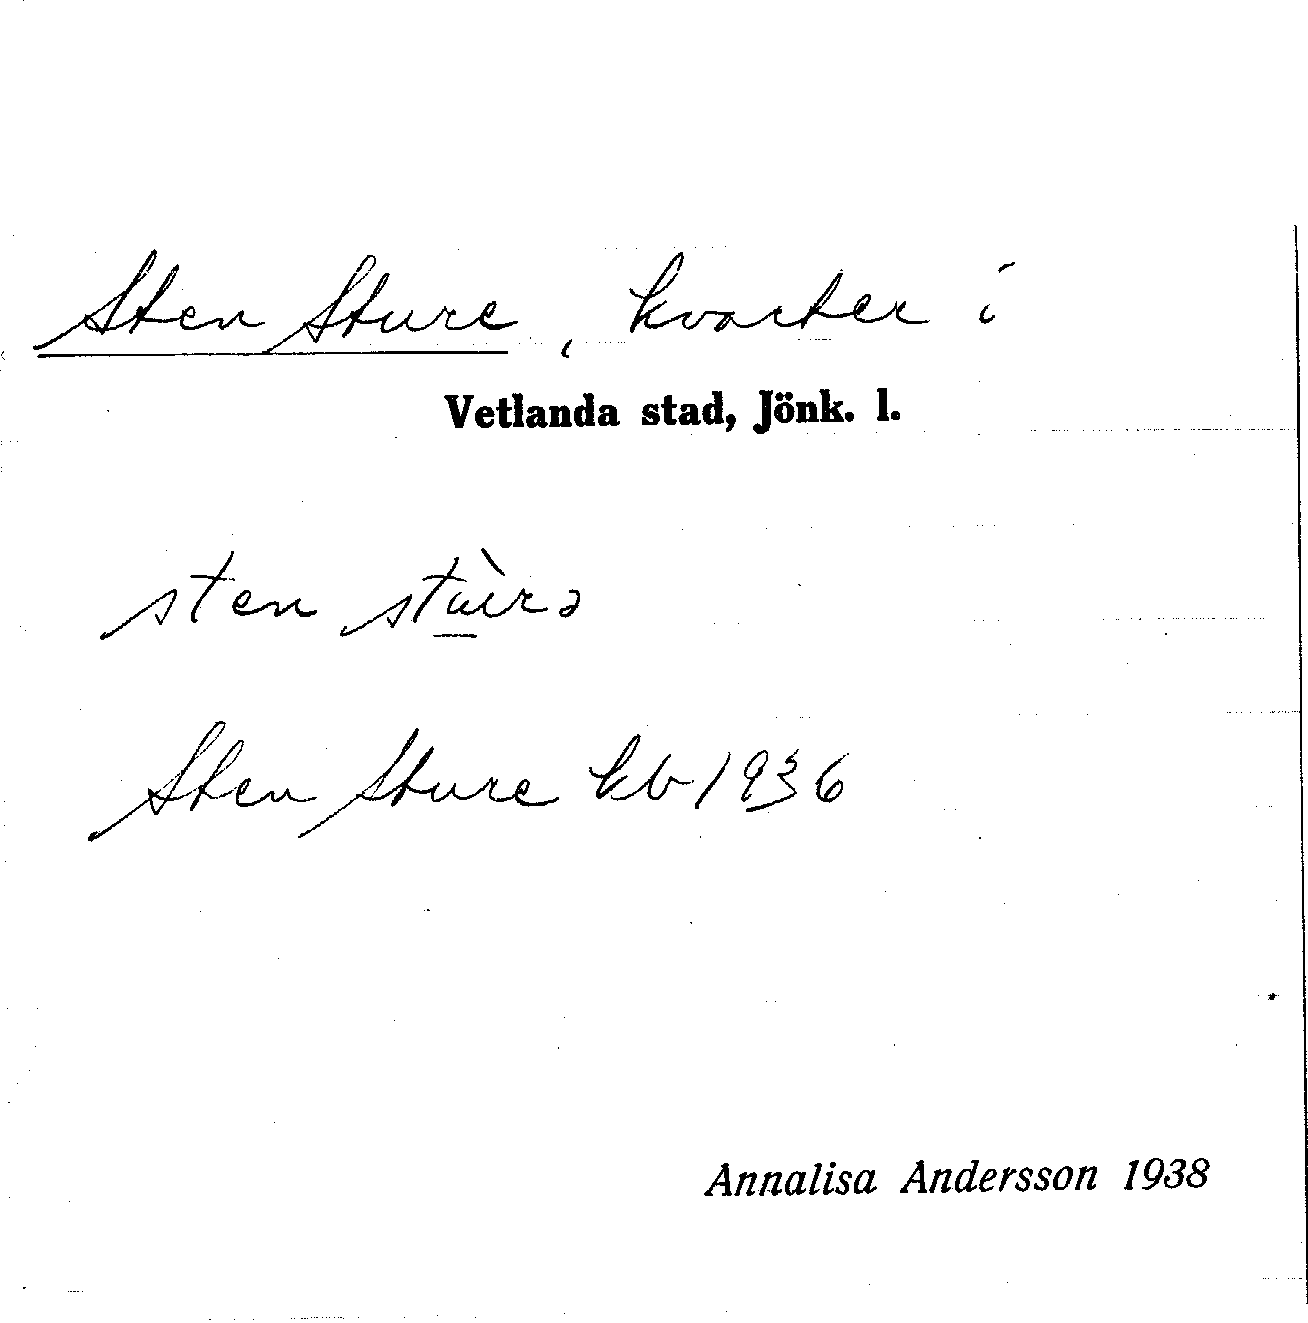 Sten Sture, kvarter i
Vetlanda stad, Jönk. l.
sten stùrə
Sten Sture kb 1936
Annalisa Andersson 1938